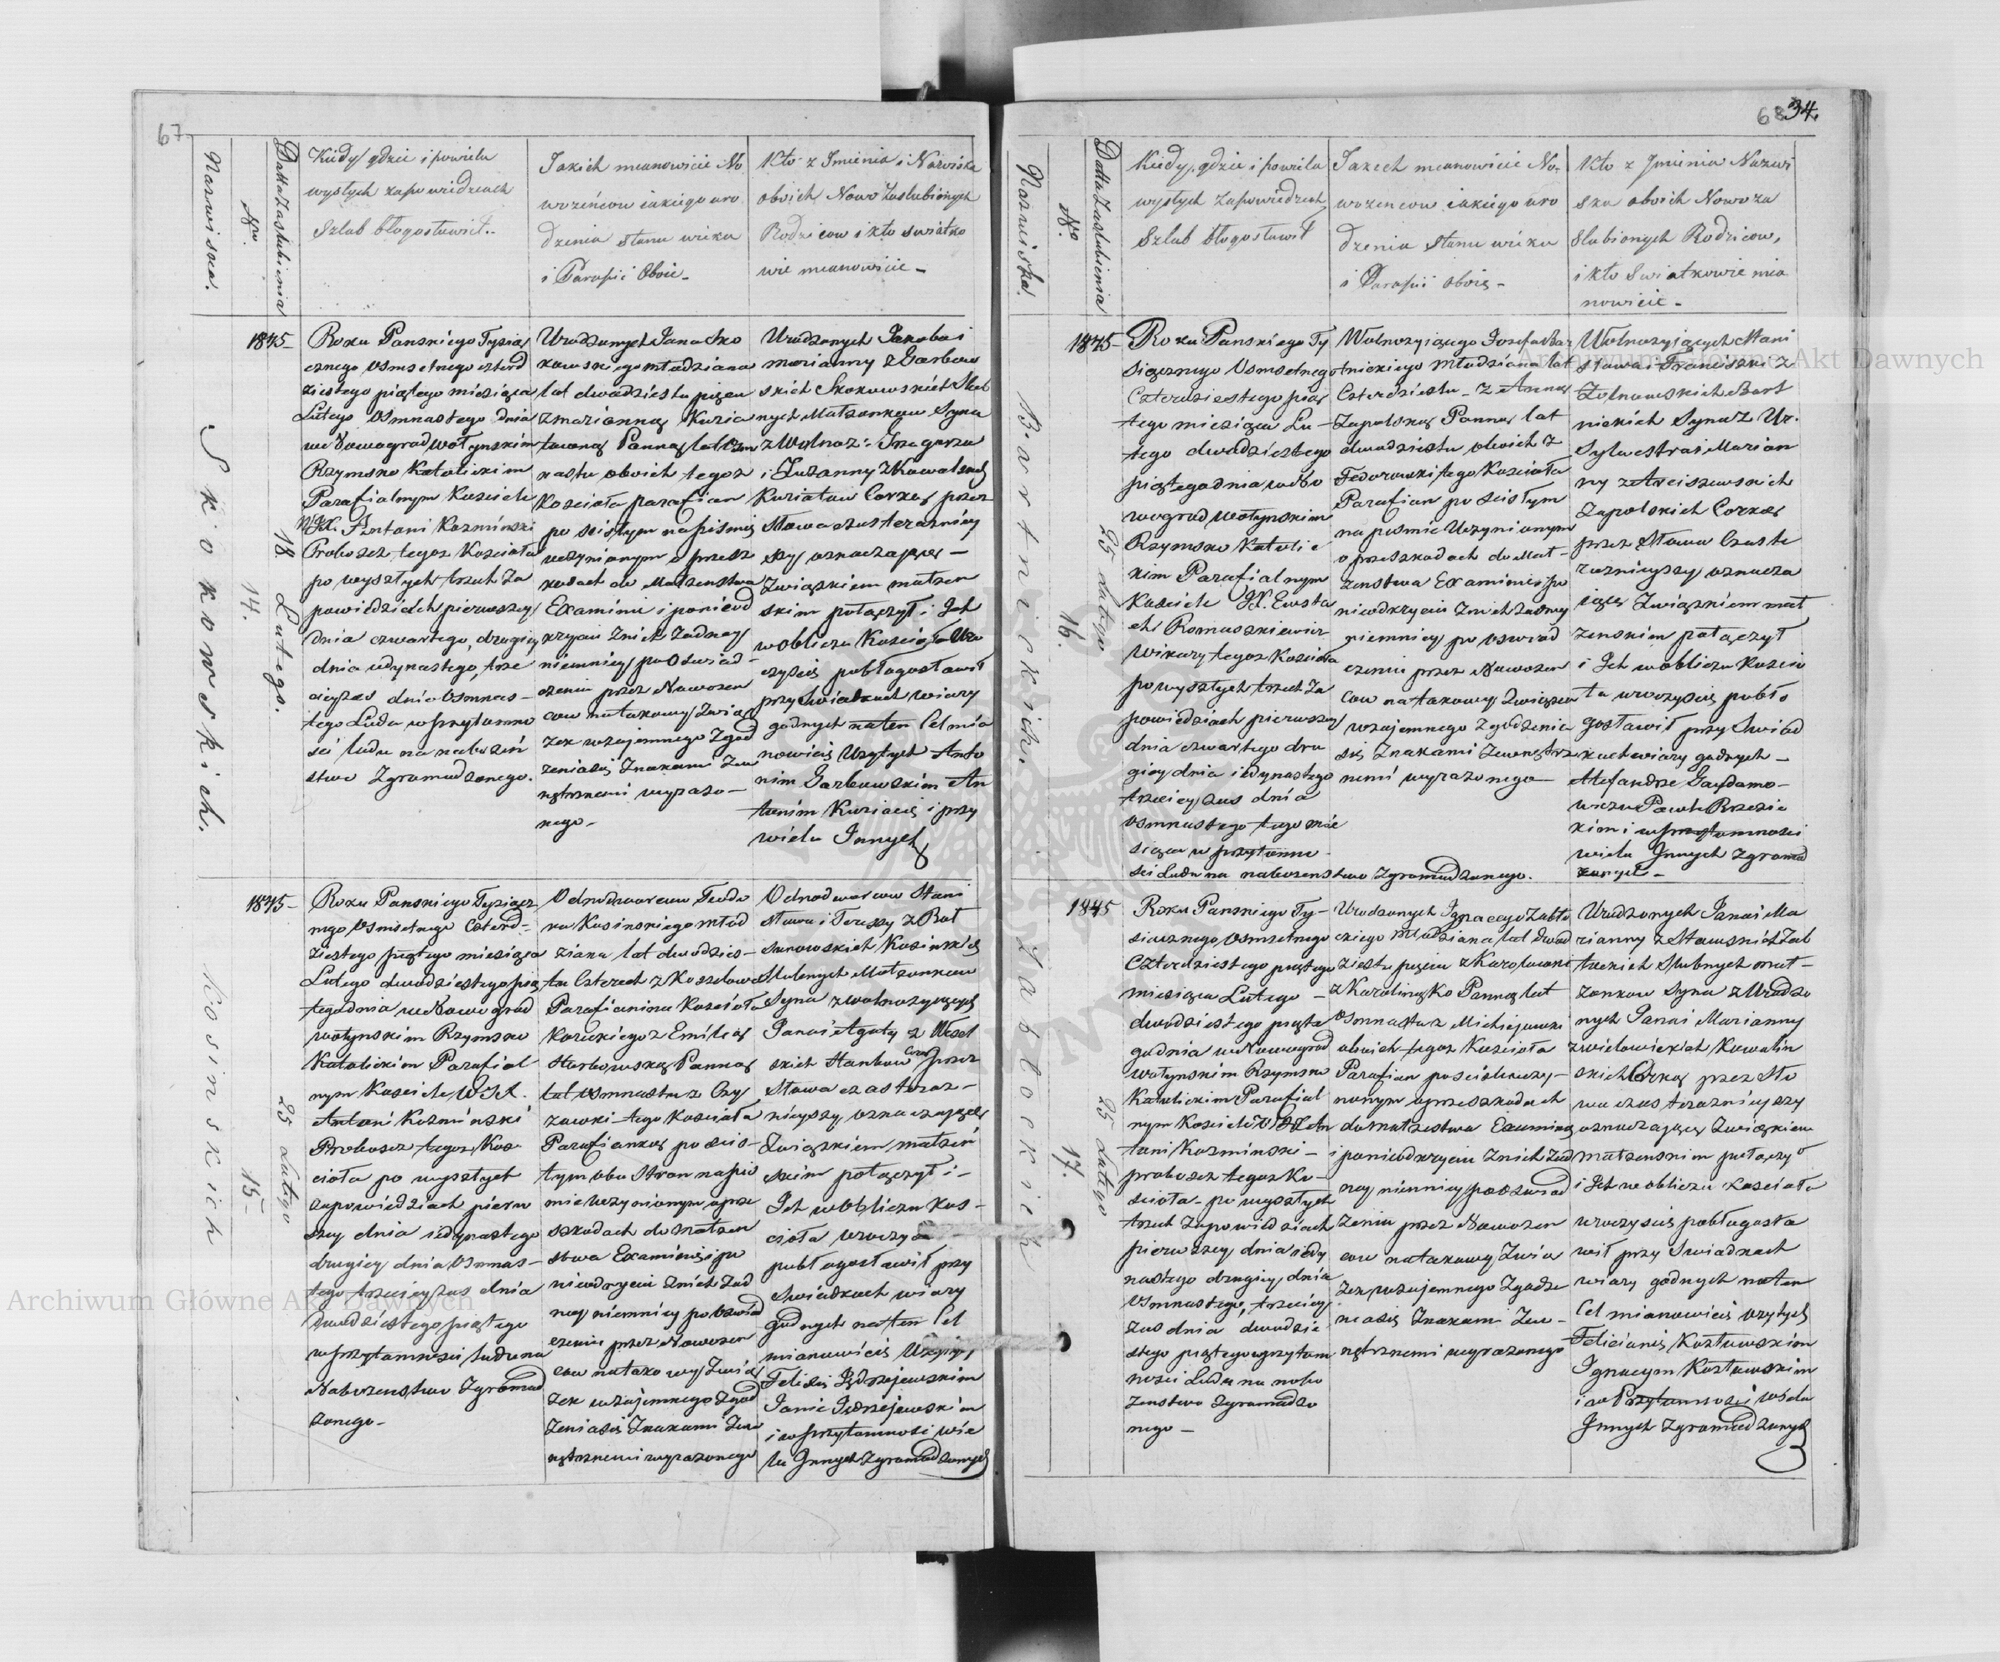 67
Nazwiska.
Nro.
Datta Zaslubienia
Kiedy, gdzie i powielu
wyszłych zapowiedziach
Szlub błogosławił..
Jakich mianowicie No
wożeńcow iakiego uro
dzenia stanu wieku
i Parafii Oboie_
Kto z Imienia i Nazwiska
oboich Nowo Zaslubionych
Rodzicow i kto swiatko
wie mianowicie_
Skokowskich.
14.
18 Lutego.
1845
Roku Panskiego Tysiąc
cznego Osmsetnego czterd
ziestego piątego miesiąca
Lutego Osmnastego dnia
w Nowogradwołynskim
Rzymsko Katolickim
Parafialnym Kosciele
W JX. Antoni Kozminski
Proboszcz tegoz Kosciola
po wyszłych trzech Za
powiedziach pierwszey
dnia czwartego, drugiey
dnia iedynastego, trze
cieyzas dnia Osmnas-
tego Luda w przytomno
sci ludu na nabożeń
stwo Zgromadzonego.
Urodzonych Jana Sko
kowskiego młodziana
lat dwadziestu pięcu
z Marianną Kuzia
towną Panną lat Osm
nastu oboich tegoz
Kosciola parafian
po scisłym na pismie
uczynionym o przesz
kodach do Małzenstwa
Examinie i ponieod
kryciu Znich Zadney
niemniey po Oswiad-
czeniu przez Nowozen
cow natakowy Zwiąs
zek wzajemnego Zgod
zeniasię Znakami Zew
nętrznemi wyrazo-
nego_
Urodzonych Jakoba i
Marianny z Garbow
skich Skokowskich Slub
nych Małzonkow Syna
z Wolnoz: Grzegorza
i Zuzanny z Kowalskich
Kuziatow Corką przez
Słowa czas terazniey
szy oznaczające_
Zwiąskiem małzen
skim połączył i Ich
w obliczu Kosciola Uro
czyscie pobłogosławił
przy Swiadkach wiary
godnych naten Cel mia
nowicie Uzytych Anto
nim Garbowskim An
tonim Kuziacie i przy
wielu Innych
Kosinskich
15-
25 Lutego
1845-
Roku Panskiego Tysiącz
nego Osmsetnego Czterd-
ziestego piątego miesiąca
Lutego dwudziestego pią
tego dnia w Nowograd
wołynskim Rzymsko
Katolickim Parafial
nym Kosciele W JX.
Antoni Kozminski
Proboszcz tegoz Kos-
ciola po wyszłych
zapowiedziach pierw
szey dnia iedynastego
drugiey dnia Osmnas-
tego trzeciey zas dnia
Dwudziestego piątego
w przytomnosci Ludu na
Nabozenstwo Zgromad
zonego-
Odnodworcow Teodo
ra Kosinskiego młod
ziana lat dwudzies-
tu Czterech z Koszelowa
Parafianina Kosciola
Koreckiego z Emilią
Starbowską Panną
lat Osmnastu z Czy
zowki tego Kosciola
Parafianką po scis-
tym obu Stron na pis
mie Uczynionym o prze
szkodach do Małzen
stwa Examinie i po
nieodkryciu Znich Zad
ney niemniey po Oswiad
czeniu przez Nowozen
cow natakowy Zwiąs
zek wzajemnego Zgod
zeniasię Znakami Zew
nętrznemi wyrazonego
Odnodworcow Stani
sława i Teressy z Boł
sunowskich Kosinskich
Slubnych Małzonkow
Syna z wolnozyiących
Jana i Agaty z Wesel
skich Starbow Corką przez
Słowa czas teraz-
nieyszy oznaczające
Zwiąskiem małzeń
skim połączył i-
Ich w obliczu Kos-
ciola Uroczyscie
pobłogosławił przy
Swiadkach wiary
godnych na ten Cel
mianowicie Uzytych
Felixie Jędrzejewskim
Janie Jędrzejewskim
i w przytomnosci wie
lu Innych Zgromadzonych
68 34.
Nazwiska.
No.
Datta Zaslubienia
Kiedy, gdzie i powielu
wyszłych Zapowiedziach
Szlub błogosławił
Jakich mianowicie No-
wozencow iakiego uro
dzenia stanu wieku
i Parafii oboie-
Kto z Imienia Nazwi
ska oboich Nowoza
slubionych Rodzicow,
i kto Swiatkowie mia
nowicie-
Bartnickich.
16.
25 Lutego
1845-
Roku Panskiego Ty
siącznego Osmsetnego
Czterdziestego pią
tego miesiąca Lu-
tego dwudziestego
piątego dnia w Nowo
wograd wołynskim
Rzymsko Katolic
kim Parafialnym
Kosciele JX. Eusta
chi Romaszkiewicz
wikary tegoz Kosciola
po wyszłych trzech Za
powiedziach pierwszey
dnia czwartego dru
giey dnia iedynastego
trzeciey zas dnia
Osmnastego tego mie
siąca w przytomno-
sci Ludu na nabozenstwo Zgromadzonego.
Wolnozyiącego Jozefa Bar
tnickiego Młodziana lat
Czterdziestu_ Z Anną
Zapolską Panną lat
dwudziestu oboich z
Fedorowki tego Kosciola
Parafian po scisłym
na pismie Uczynionym
o przeszkodach do Mał-
zenstwa Examinie i po
nieodkryciu Znich Zadney
niemniey po oswiad
czeniu przez Nowozen
cow na takowy Zwiąszek
wzajemnego Zgodzenia
się Znakami Zewnętrz
nemi wyrazonego
Wolnozyiących Stani
sława i Franciszki z
Zolnowskich Bart
nickich Syna Z Ur.
Sylwestra i Marian
ny z Arciszewskich
Zapolskich Corką
przez Słowa Czas te
raznieyszy oznacza
iące Zwiąskiem mał
zenskim połączył
i Ich w obliczu Koscio
la uroczyscie pobło
gosławił przy Swiad
kach wiary godnych-
Alexandrze Gaydamo-
wiczu Pawle Brzezic
kim i w przytomnosci
wielu Innych Zgromad
zonych-
Zabłockich
17.
25 Lutego
1845
Roku Panskiego Ty-
siacznego Osmsetnego
Czterdziestego piątego
miesiąca Lutego -
dwudziestego piąte
go dnia w Nowograd
wołynskim Rzymsko
Katolickim Parafial
nym Kosciele W JX An
toni Kozminski-
proboszcz tegoz Ko-
sciola- po wyszłych
trzech Zapowiedziach
pierwszey dnia iedy
nastego drugiey dnia
Osmnastego, trzeciey
zas dnia dwudzie
stego piątego w przytom
nosci Ludu na nabo
zenstwo Zgromadzo
nego_
Urodzonych Ignacego Zabło
ckiego Młodziana lat dwad
ziestu pięciu z Karolowki
z Karoliną Ko Panną lat
Osmnastu z Michiejowki
oboich tegoz Kosciola
Parafian po scislu uczy-
nionym o przeszkodach
do małzestwa Examinie
i ponieodkryciu Znich Zad
ney niemniey po oswiad
zeniu przez Nowozen
cow natakowy Zwia
zek wzajemnego Zgodze
niasię Znakami Zew-
nętrznemi wyrazonego
Urodzonych Jana i Ma
rianny z Stawskich Zab
łockich Slubnych mał-
zonkow Syna z Urodzo
nych Jana i Marianny
z wielowieskich Kowalin
skich Corką przez Sło
wa czas teraznieyszy
oznaczające Zwiąskiem
małzenskim połączył
i Ich w obliczu Kosciola
uroczyscie pobłogosła
wił przy Swiadkach
wiary godnych na ten
Cel mianowicie uzytych
Felicianie Kozłowskim
Ignacym Kozłowskim
i w Przytomnosci wielu
Innych Zgromadzonych
Archiwum Główne Akt Dawnych
Archiwum Główne Akt Dawnych